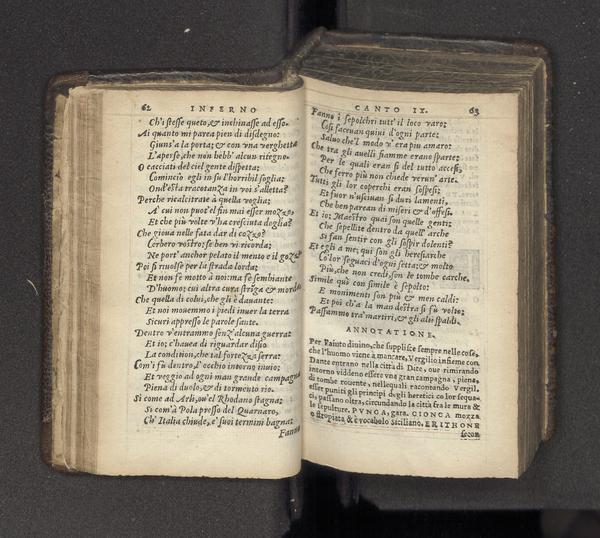 62 INFERNO
Ch'i stesse queto, & inchinasse ad esso.
Ai quanto mi parea pien di disdegno:
Giuns'a la porta; & con una verghetta
L'aperse, che non hebb' alcun ritegno.
O cacciati del ciel gente dispetta;
Cominciò egli in su l'horribil soglia;
Ond'esta tracotanza in voi s'alletta?
Perche ricalcitrate à quella voglia,
A' cui non puot'el fin mai esser mozzo,
Et che più volte v'ha cresciuta doglia?
Che giova nelle fata dar di cozzo?
Cerbero vostro; se ben vi ricorda;
Ne port' anchor pelato il mento e il gozzo.
Poi si rivolse per la strada lorda;
Et non fe motto à noi: ma fe sembiante
D'huomo; cui altra cura stringa & morda
Che quella di colui, che gli è davante:
Et noi movemmo i piedi inver la terra
Sicuri appresso le parole sante.
Dentro v'entrammo senz'alcuna guerra:
Et io; c'havea di riguardar disio
La condition, che tal fortezza serra;
Com'i fu dentro, l'occhio intorno invio;
Et veggio ad ogni man grande campagna
Piena di duolo, & di tormento rio.
Si come ad Arli, ov'el Rhodano stagna;
Si com'à Pola presso del Quarnaro,
Ch' Italia chiude, e' suoi termini bagna:
Fanno
CANTO IX. 63
Fanno i sepolchri tutt' il loco varo:
Così facevan quivi d'ogni parte;
Salvo che'l modo v'era piu amaro:
Che tra gli avelli fiamme erano sparte;
Per le quali eran sì del tutto accesi,
Che ferro più non chiede verun' arte.
Tutti gli lor coperchi eran sospesi;
Et fuor n'uscivan sì duri lamenti,
Che ben parean di miseri & d'offesi.
Et io; Maestro quai son quelle genti;
Che sepellite dentro da quell' arche
Si fan sentir con gli sospir dolenti?
Et egli a me; qui son gli heresiarche
Co' lor seguaci d'ogni setta; & molto
Più, che non credi, son le tombe carche.
Simile quì con simile è sepolto:
E monimenti son più & men caldi:
Et poi ch'a la man destra si fù volto;
Passammo tra' martiri, & gli alti spaldi.
ANNOTATIONE.
Per l'aiuto divino, che supplisce sempre nelle cose,
che l'huomo viene à mancare, Vergilio insieme con
Dante entrano nella città di Dite, ove rimirando
intorno viddeno essere una gran campagna, piena
di tombe rovente, nellequali raccontando Vergil.
esser puniti gli principi degli heretici co lor sequa-
ci, passano oltra, circundando la città fra le mura &
le sepulture. PUNGA, gara. CIONCA mozza
o stropiata & è vocabolo siciliano. ERITHONE
secon